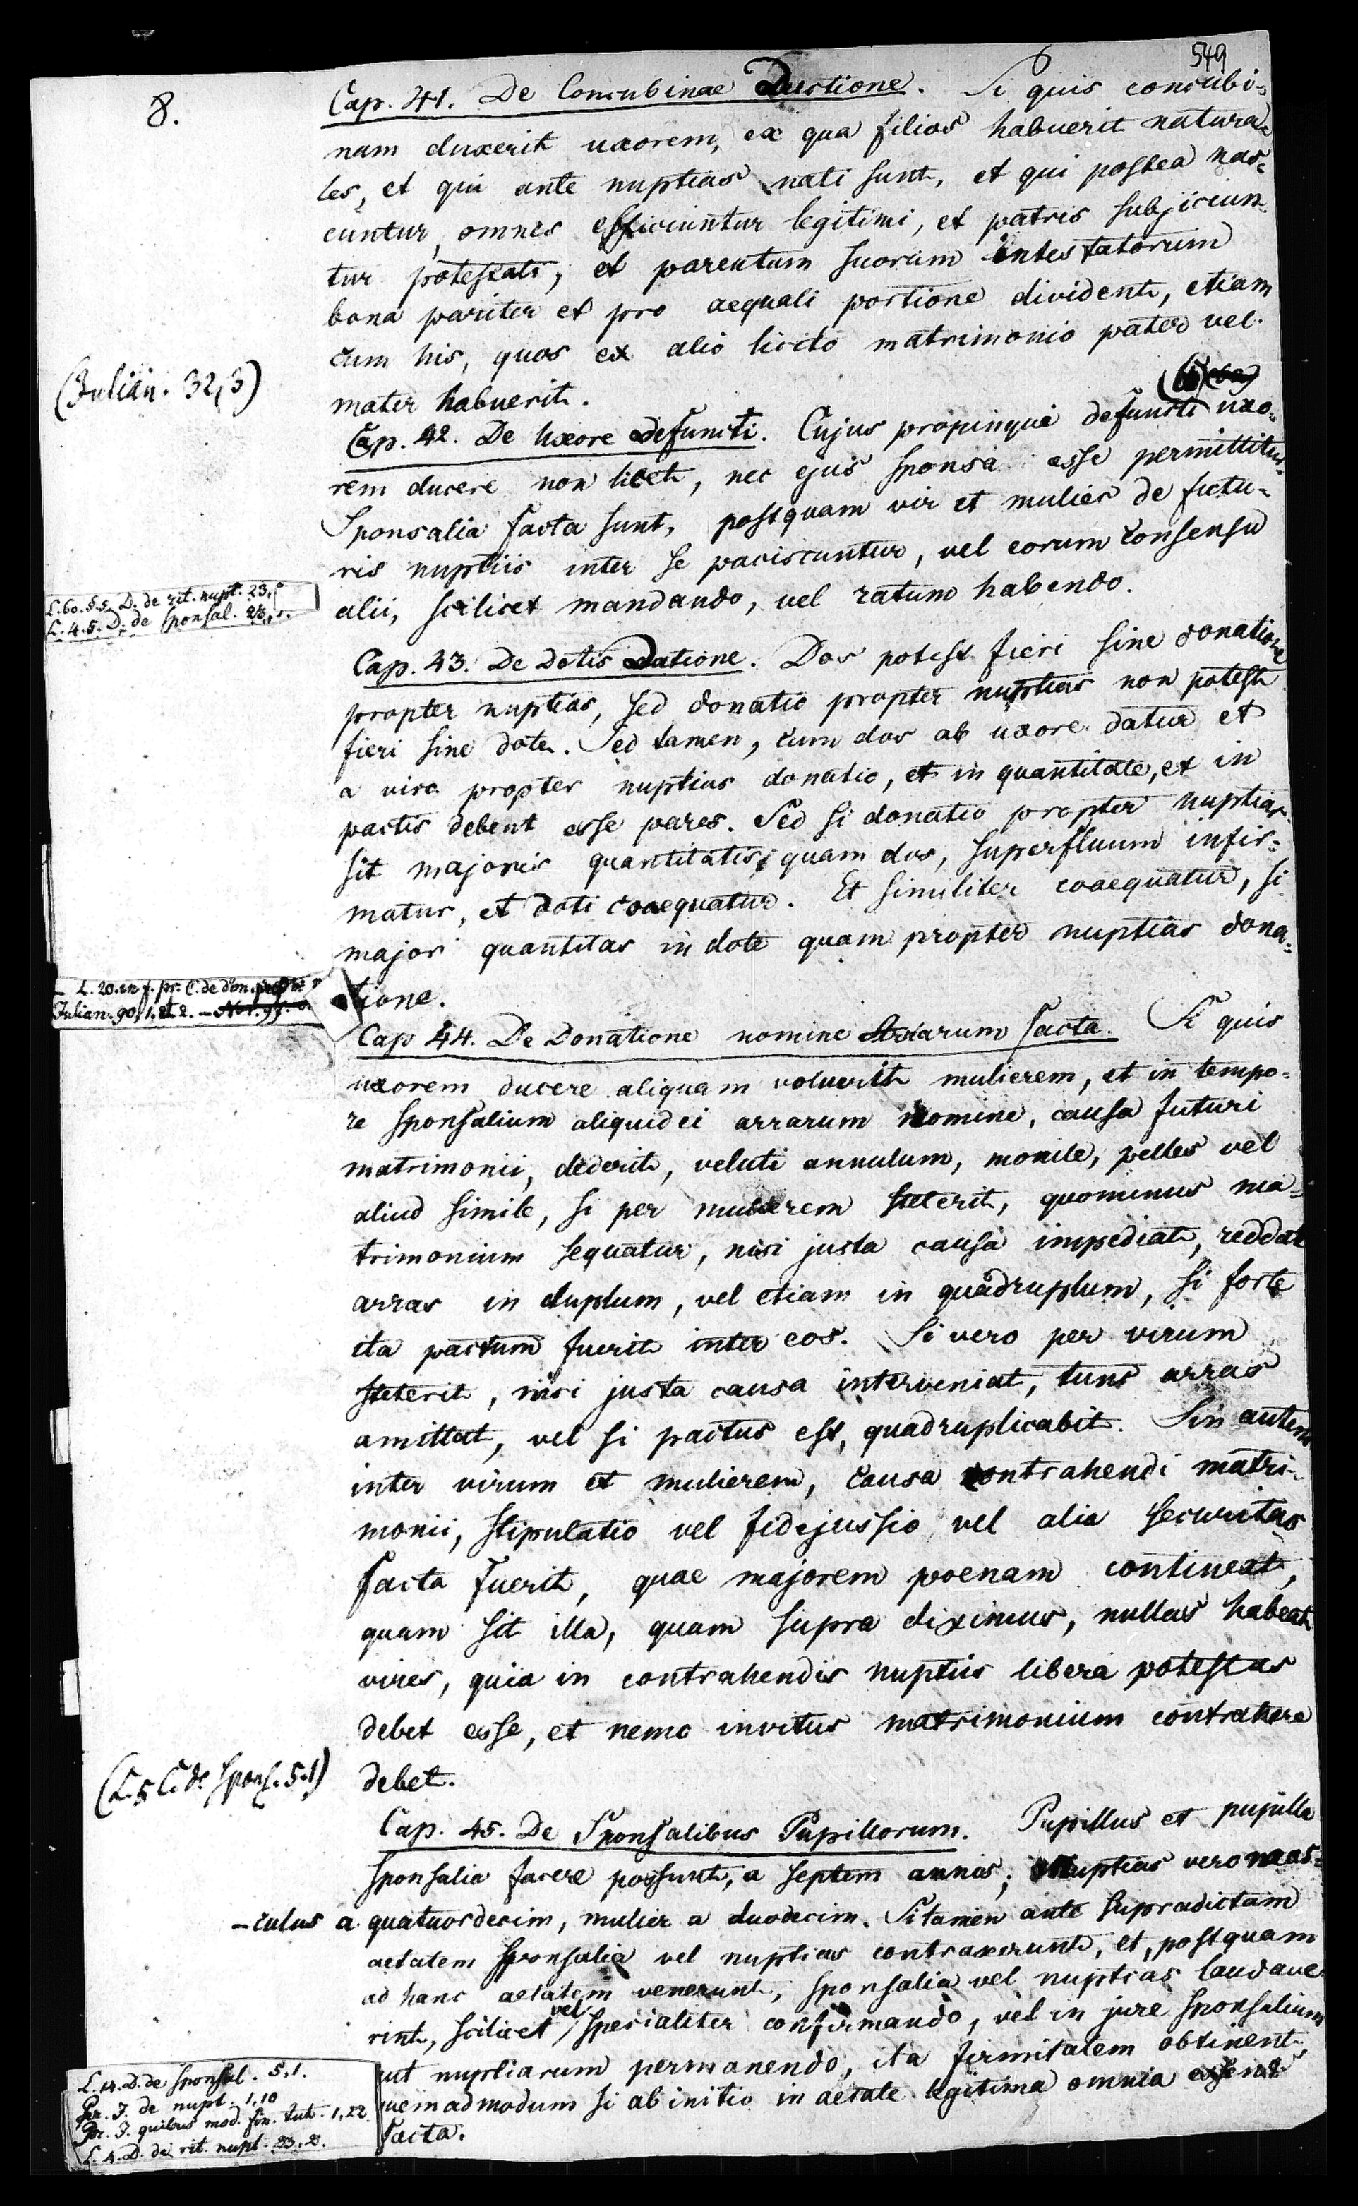 549
8.
Cap. 41. De Concubinae Ductione. Si quis concubi-
nam duxerit uxorem, ex qua filios habuerit natura-
les, et qui ante nuptias nati sunt, et qui postea nas-
cuntur, omnes efficiuntur legitimi, et patris subjiciun-
tur potestati, et parentum suorum intestatorum
bona pariter et pro aequali portione dividents, etiam
cum his, quos ex alio licito matrimonio pater vel
(Julian. 32,3)
mater habuerit.
Cap. 42. De Uxore defuncti. Cujus propinqui defuncti uxo-
rem ducere non licet, nec ejus sponsa esse permittitur.
Sponsalia facta sunt, postquam vir et mulier de futu-
ris nuptiis inter se paciscuntur, vel eorum consensu
L. 60. §.5. D. de rit. nupt. 23,
L. 4. 5. D. de sponsal. 23, 1.
alii, scilicet mandando, vel ratum habendo.
Cap. 43. De Dotis Datione. Dos potest fieri sine donatione
propter nuptias, sed donatio propter nuptias non potest
fieri sine dote. Sed tamen, cum dos ab uxore datur et
a viro propter nuptias donatio, et in quantitate, et in
pactis debent esse pares. Sed si donatio propter nuptias
sit majoris quantitatis, quam dos, superfluum infir-
matur, et doti coaequatur. Et similiter coaequatur, si
major quantitas in dote quam propter nuptias dona-
L. 20. in f. pr. C. de don.
Julian. 90, 1. et 2. – Nov. 97.
tione.
Cap 44. De Donatione nomine Arrarum facta. Si quis
uxorem ducere aliquam voluerit mulierem, et in tempo-
re sponsalium aliquid ei arrarum nomine, causa futuri
matrimonii, dederit, veluti annulum, monile, pelles vel
aliud simile, si per mulierem steterit, quominus ma-
trimonium sequatur, nisi justa causa impediat, reddat
arras in duplum, vel etiam in quadruplum, si forte
ita pactum fuerit inter eos. Si vero per virum
steterit, nisi justa causa interveniat, tunc arras
amittat, vel si pactus est, quadruplicabit. Sin autem
inter virum et mulierem, causa contrahendi matri-
monii, stipulatio vel fidejussio vel alia securitas
facta fuerit, quae majorem poenam contineat,
quam sit illa, quam supra diximus, nullas habeat
vires, quia in contrahendis nuptiis libera potestas
debet esse, et nemo invitus matrimonium contrahere
(L. 5 C. de Spons. 5.1)
debet.
Cap. 45. De Sponsalibus Pupillorum. Pupillus et pupilla
sponsalia facere possunt, a septem annis; nuptias vero mas-
-culus a quatuordecim, mulier a duodecim. Si tamen ante supradictam
aetatem sponsalia vel nuptias contraxerunt, et, postquam
ad hanc aetatem venerunt, sponsalia vel nuptias laudave-
rint, scilicet vel specialiter confirmando, vel in jure sponsalium
aut nuptiarum permanendo, ita firmitatem obtinent,
quemadmodum si ab initio in aetate legitima omnia essent
facta.
L. 14. D. de sponsal. 5.1.
Pr. J. de nupt. 1,10
Pr. J. quibus mod. fin. tut. 1,22
L. 4. D. de rit. nupt. 23.2.